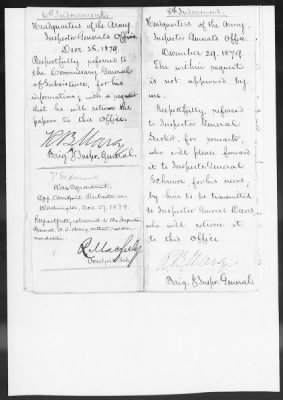 6th Indorsement.
Headquarters of the Army.
Inspector General's Office
Decr 26, 1879.
Respectfully referred to
the Commissary General
of Subsistence, for his
information; with a request
that he will return the
papers to this Office.
R B Marcy
Brig. & Inspr. General.
7th Indorse
War Department,
Washington, Dec 27, 1879.
Respectfully returned to the Inspector
General U.S. Army, without recom-
mendation.
R. Macfeely
8th Indorsement.
Headquarters of the Army.
Inspector General's Office.
December 29. 1879
The within request
is not approved by
me.
Respectfully, referred
to Inspector General
Sacket, for remark,
who will please forward
it to Inspector General
Schriver for his views,
by him to be transmitted
to Inspector General Davis,
who will return it
to this Office
R B Marcy
Brig. & Inspr. General.